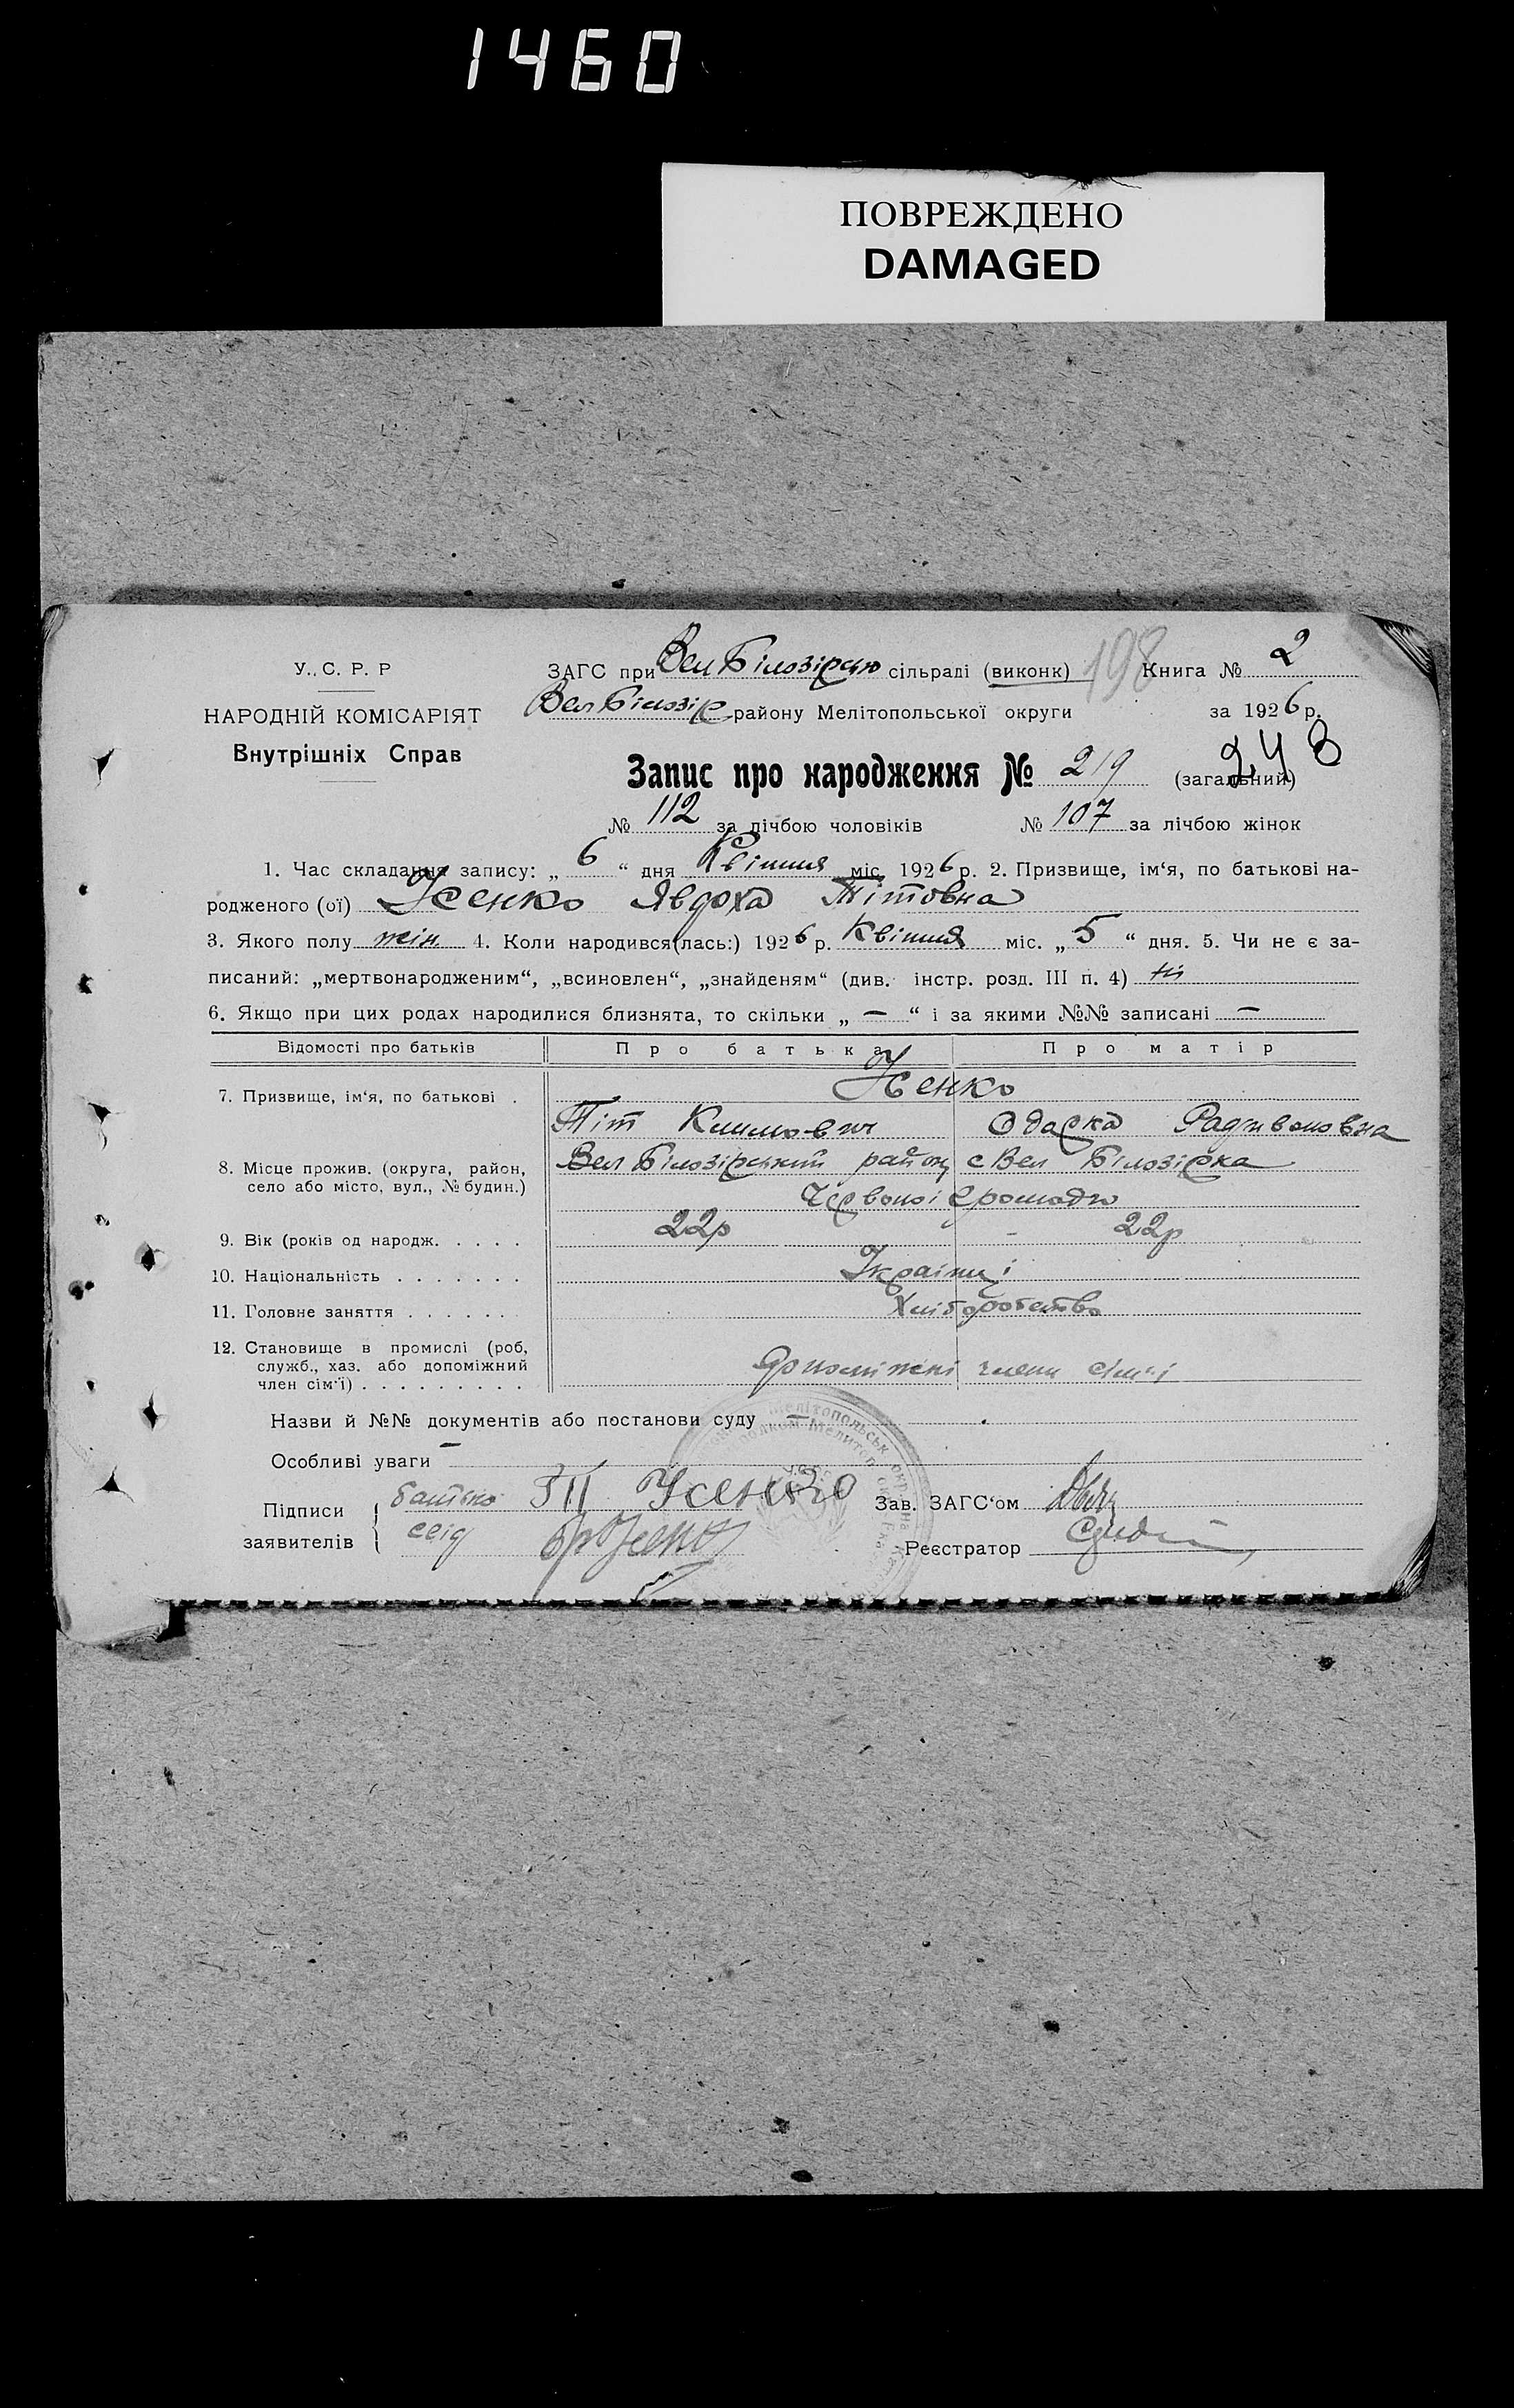 1460
ПОВРЕЖДЕНО
DAMAGED
У. С. Р. Р
НАРОДНІЙ КОМІСАРІЯТ
Внутрішніх Справ
ЗАГС при Вел Білозірсью сільраді (виконк) 198 Книга № 2
Вел Білозір району Мелітопольської округи за 1926 р.
248
Запис про народження № 219 (загальний)
№ 112 за лічбою чоловіків № 107 за лічбою жінок
1. Час складання запису: „ 6 “ дня Квітня міс. 1926 р. 2. Призвище, ім‘я, по батькові на-
родженого (ої) Усенко Явдоха Тітовна
3. Якого полу жін. 4. Коли народився(лась:) 1926 р. Квітня міс. „ 5 “ дня. 5. Чи не є за-
писаний: „мертвонародженим“, „всиновлен“, „знайденям“ (див. інстр. розд. III п. 4) ні
6. Якщо при цих родах народилися близнята, то скільки „ — “ і за якими №№ записані —
Відомості про батьків Про батька Про матір
7. Призвище, ім‘я, по батькові . Усенко
Тіт Климович Одарка Радивоновна
8. Місце прожив. (округа, район,
село або місто, вул., № будин.)
Вел Білозірський район с Вел Білозірка
Червоної громади
9. Вік (років од народж. . . . . 22р - 22р
10. Національність . . . . . . . Українці
11. Головне заняття . . . . . . Хліборобство
12. Становище в промислі (роб,
служб., хаз. або допоміжний
член сім‘ї) . . . . . . . . . Допоміжні члени сім'ї
Назви й №№ документів або постанови суду —
Особливі уваги —
Підписи
заявителів
батько Усенко
свід
Зав. ЗАГС‘ом
Реєстратор